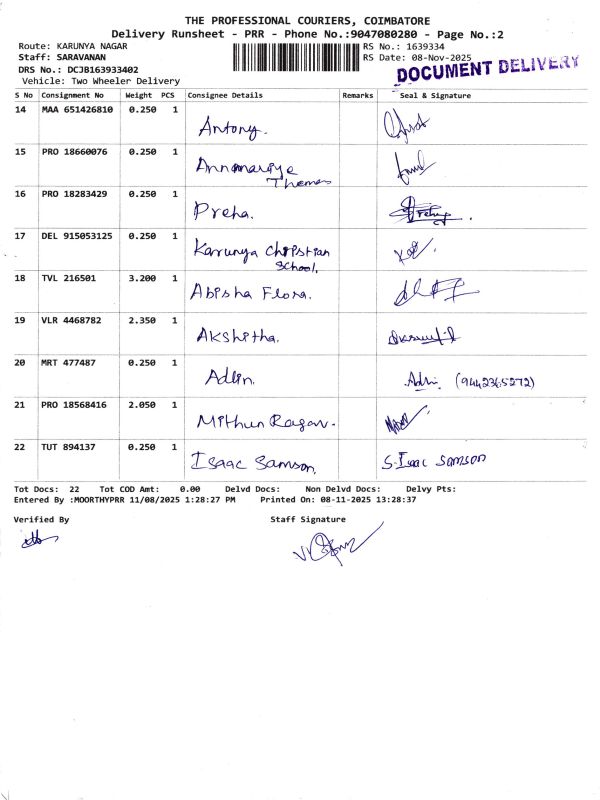 THE PROFESSIONAL COURIERS, COIMBATORE
Delivery Runsheet - PRR - Phone No.:9047080280 - Page No.:2
Route: KARUNYA NAGAR
RS No.: 1639334
Staff: SARAVANAN
RS Date: 08-Nov-2025
DRS No.: DCJB163933402
DOCUMENT DELIVERY
Vehicle: Two Wheeler Delivery
S No Consignment No Weight PCS Consignee Details Remarks Seal & Signature
14 MAA 651426810 0.250 1 Antony.
15 PRO 18660076 0.250 1 Annamariye
Thomas
16 PRO 18283429 0.250 1 Preha.
17 DEL 915053125 0.250 1 Karunya Christian
School.
18 TVL 216501 3.200 1 Abisha Flora.
19 VLR 4468782 2.350 1 Akshitha.
20 MRT 477487 0.250 1 Adlin. Adlin (9442365272)
21 PRO 18568416 2.050 1 Mithun Ragav.
22 TUT 894137 0.250 1 Isaac Samson. S.Isaac Samson
Tot Docs: 22 Tot COD Amt: 0.00 Delvd Docs: Non Delvd Docs: Delvy Pts:
Entered By :MOORTHYPRR 11/08/2025 1:28:27 PM Printed On: 08-11-2025 13:28:37
Verified By Staff Signature